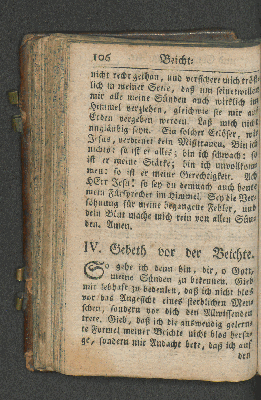 106 Beicht-
nicht recht gethan, und versichere mich tröst-
lich in meiner Seele, daß um seinetwillen
mir alle meine Sünden auch wirklich im
Himmel verziehen, gleichwie sie mir auf
Erden vergeben werden. Laß mich nicht
ungläubig seyn. Ein solcher Erlöser, wie
Jesus, verdienet kein Mistrauen. Bin ich
nichts: so ist er alles; bin ich schwach: so
ist er meine Stärke; bin ich unvollkom-
men: so ist er meine Gerechtigkeit. Ach
HErr Jesu! so sey du demnach auch heute
mein Fürsprecher im Himmel. Sey die Ver-
söhnung für meine begangene Fehler, und
dein Blut mache mich rein von allen Sün-
den. Amen.
IV. Gebeth vor der Beichte.
So gehe ich denn hin, dir, o Gott,
meine Sünden zu bekennen. Gieb
mir lebhaft zu bedenken, daß ich nicht blos
vor das Angesicht eines sterblichen Men-
schen, sondern vor dich den Allwissenden
trete. Gieb, daß ich die auswendig gelern-
te Formel meiner Beichte nicht blos hersa-
ge, sondern mit Andacht bete, daß ich auf
den